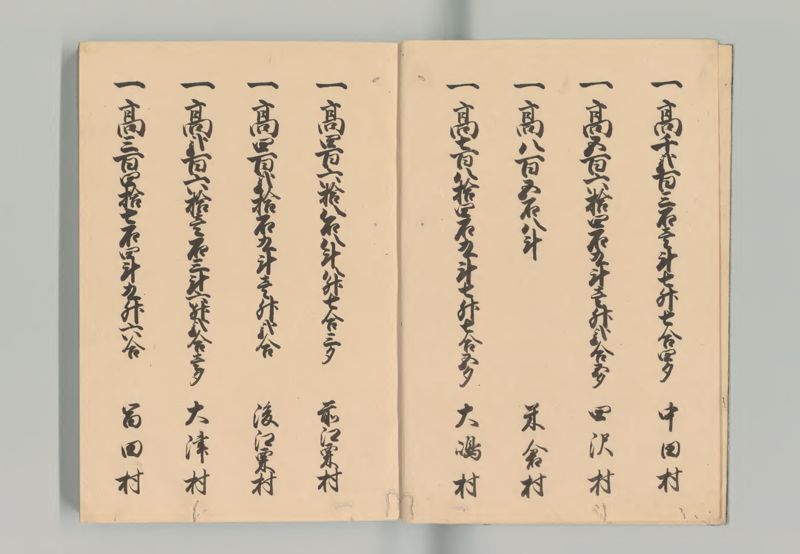 一 高千弐百三石壱斗七升七合四夕 中田村
一 高五百六拾四石九斗壱升弐合五夕 田沢村
一 高八百五石八斗 米倉村
一 高七百八拾四石九斗七升七合五夕 大嶋村
一 高四百六拾八石八斗八升七合三夕 前江粟村
一 高四百弐拾石九斗壱升弐合 後江粟村
一 高弐百六拾壱石三斗六升弐合壱夕 大津村
一 高三百四拾七石四斗九升六合 冨田村